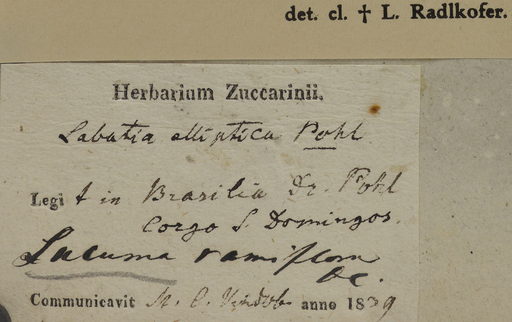 det. cl. † L. Radlkofer.
Herbarium Zuccarinii.
Labatia elliptica Pohl
Legit in Brasilia Dr. Pohl
Corgo S. Domingos.
Lucuma ramiflora
DC.
Communicavit M. C. Vindob. anno 1839